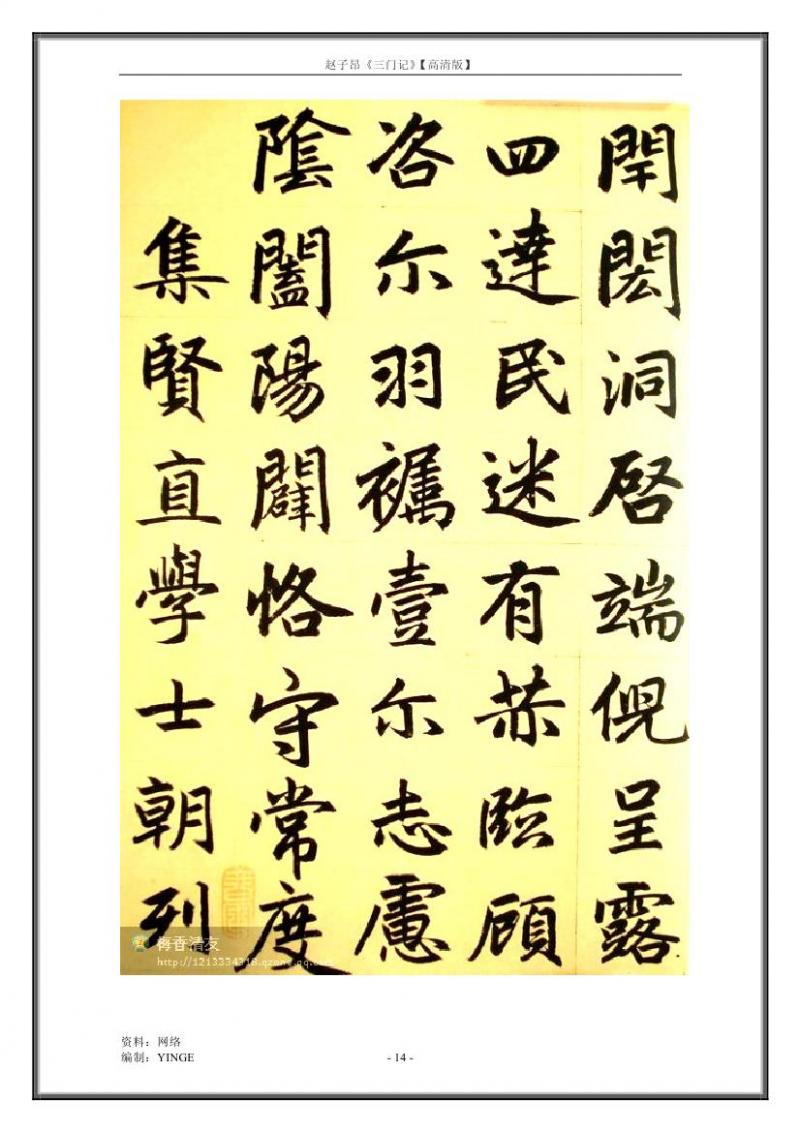 赵子昂《三门记》【高清版】
閈閎洞啓端倪呈露
四達民迷有赫臨顧
咨尔羽壹尔志慮
陰闔陽闢恪守常度
集賢直學士朝列
梅香清友
http://1213334318.qzone.qq.com
资料：网络
编制：YINGE
- 14 -